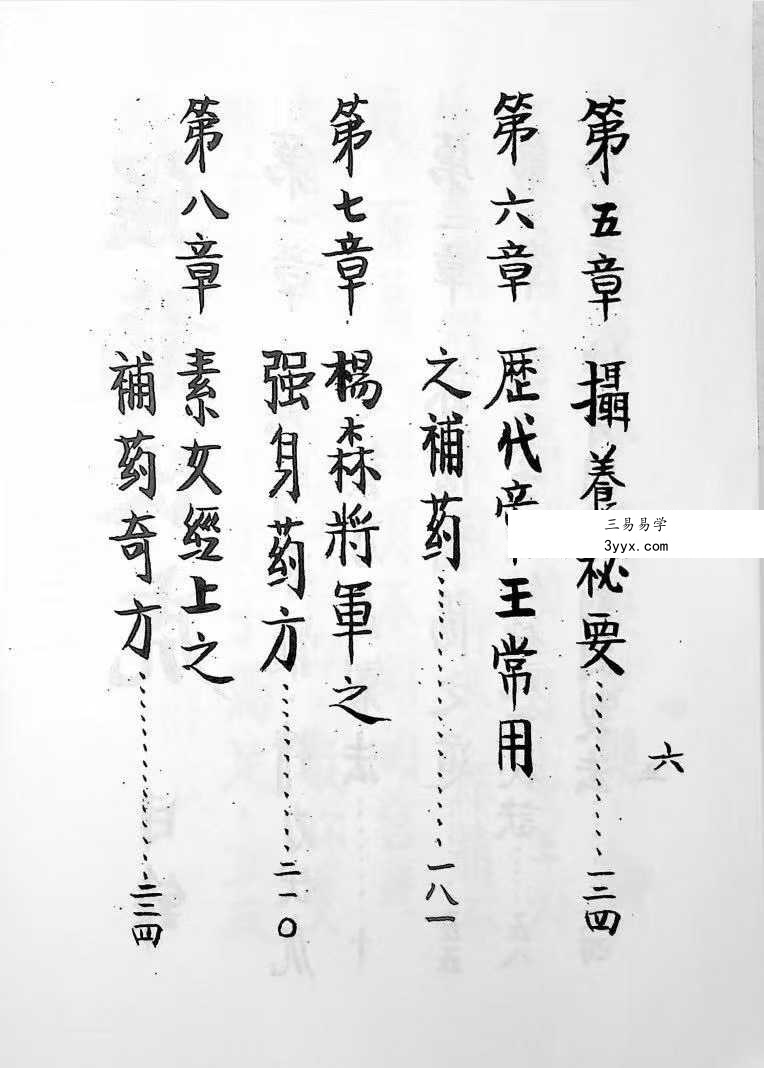 六
第五章 攝養祕要……一三四
第六章 歴代帝王常用
之補药……一八一
第七章 楊森將軍之
强身药方……二一〇
第八章 素女經上之
補药奇方……二三四
三易易学
3yyx.com